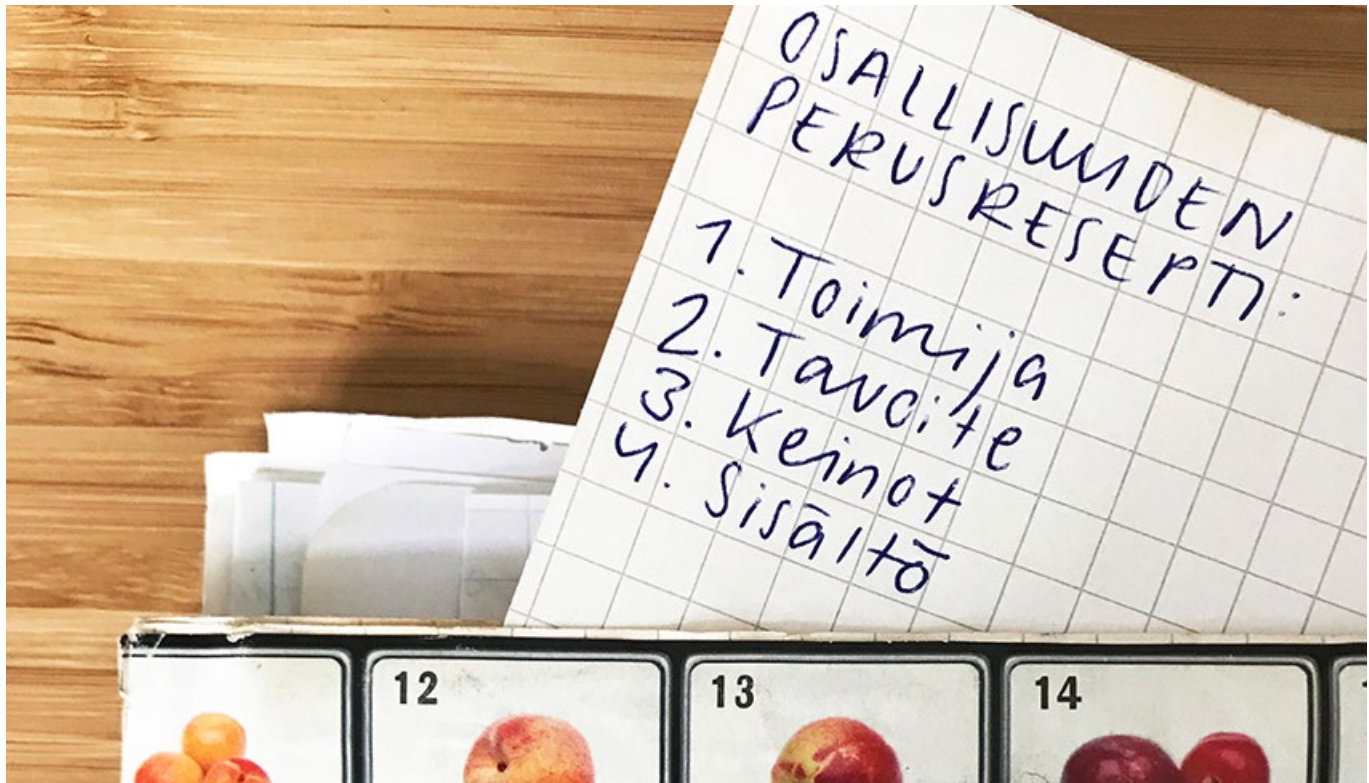 OSALLISUUDEN
PERUSRESEPTI:
1. Toimija
2. Tavoite
3. Keinot
4. Sisältö
12
13
14